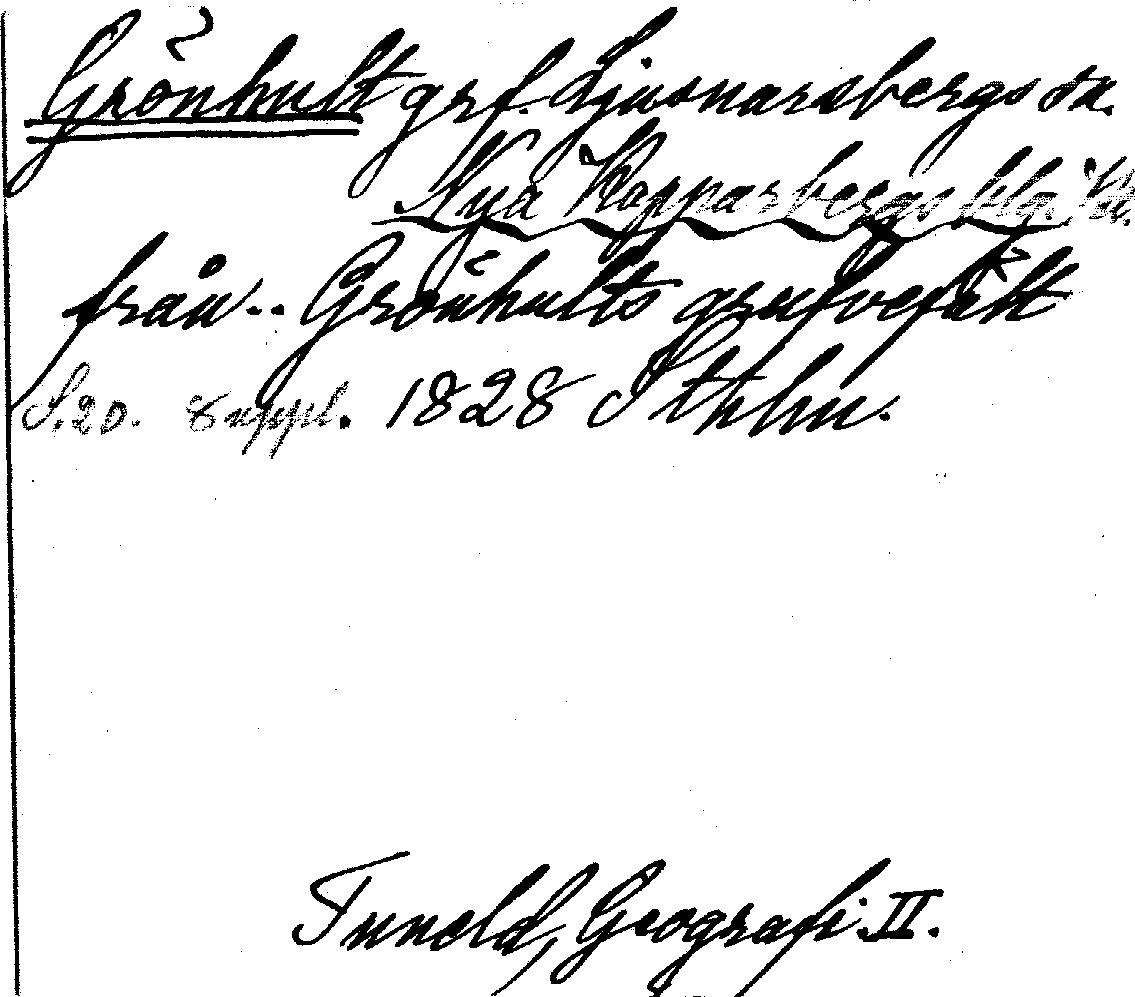 Grönhult grf. Ljusnarsbergs sn.
Nya Kopparbergs blg. V
från.. Grönhults grufvefält
S. 20. Suppl. 1828 Sthlm.
Tuneld, Geografi. II.